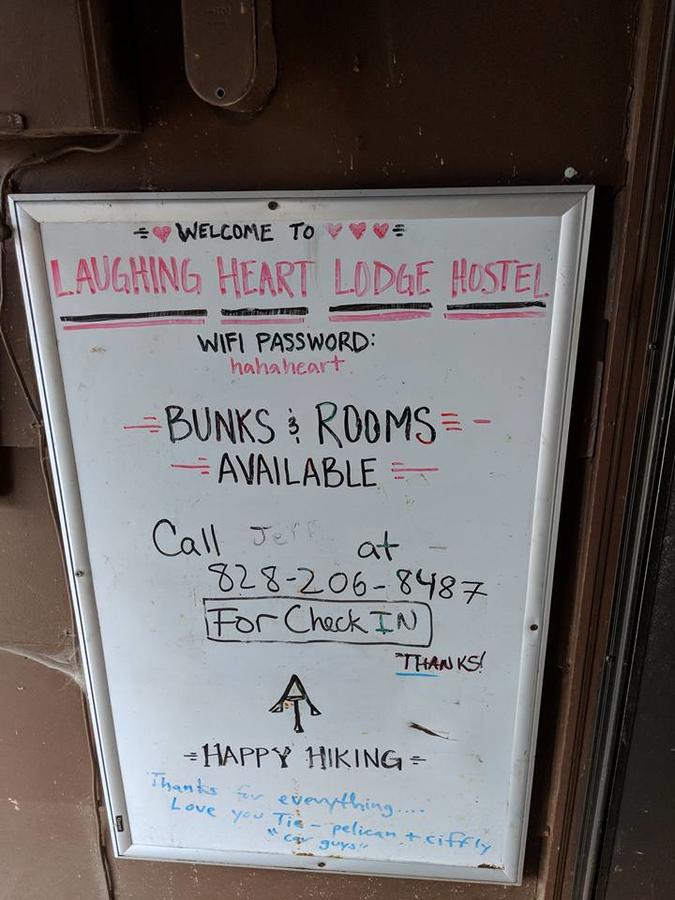 WELCOME TO
LAUGHING HEART LODGE HOSTEL
WIFI PASSWORD:
hahaheart
BUNKS & ROOMS
AVAILABLE
Call Jeff at
828-206-8487
For Check IN
THANKS!
AT
HAPPY HIKING
Thanks for everything....
Love you Tie - pelican +
"car guys"